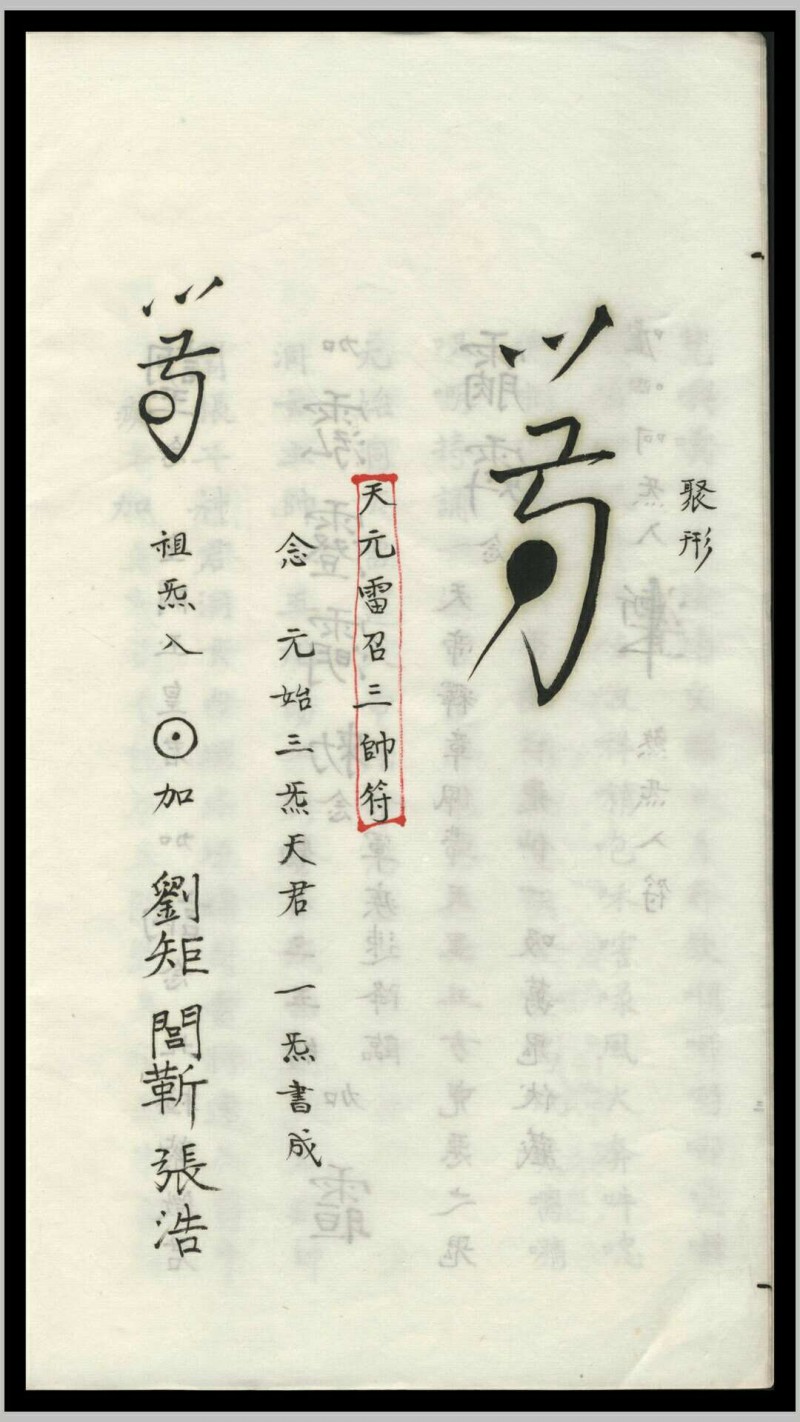 聚形
天元雷召三帥符
念 元始三炁天君 一炁書成
祖炁入 加 劉矩 誾蘄 張浩